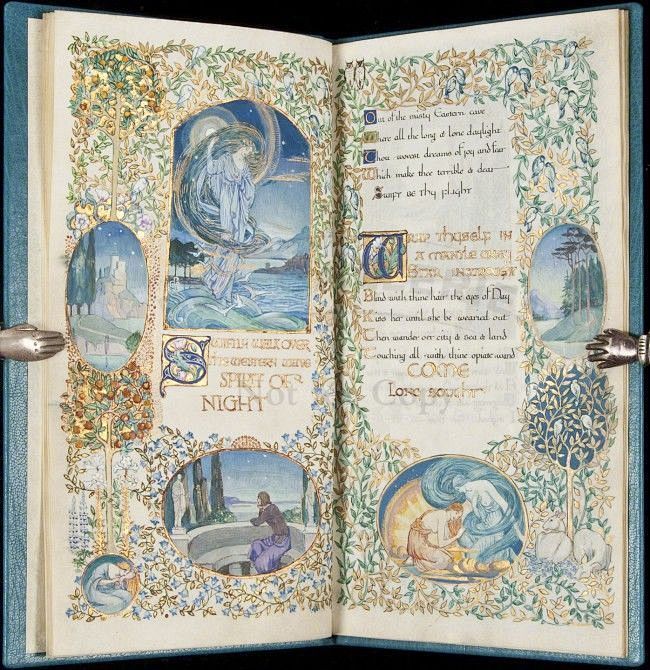 SWIFTLY WALK OVER
THE WESTERN WAVE
SPIRIT OF
NIGHT
Out of the misty Eastern cave
Where all the long & lone daylight
Thou wovest dreams of joy and fear
Which make thee terrible & dear —
Swift be thy flight
WRAP THYSELF IN
A MANTLE GREY
STAR INWROUGHT
Blind with thine hair the eyes of Day
Kiss her until she be wearied out
Then wander o'er city & sea & land
Touching all with thine opiate wand
COME
LONG SOUGHT
Not Copy